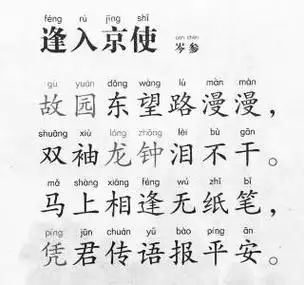 féng rù jīng shǐ cén shēn
逢入京使 岑参
gù yuán dōng wàng lù màn màn
故园东望路漫漫，
shuāng xiù lóng zhōng lèi bù gān
双袖龙钟泪不干。
mǎ shàng xiāng féng wú zhǐ bǐ
马上相逢无纸笔，
píng jūn chuán yǔ bào píng ān
凭君传语报平安。